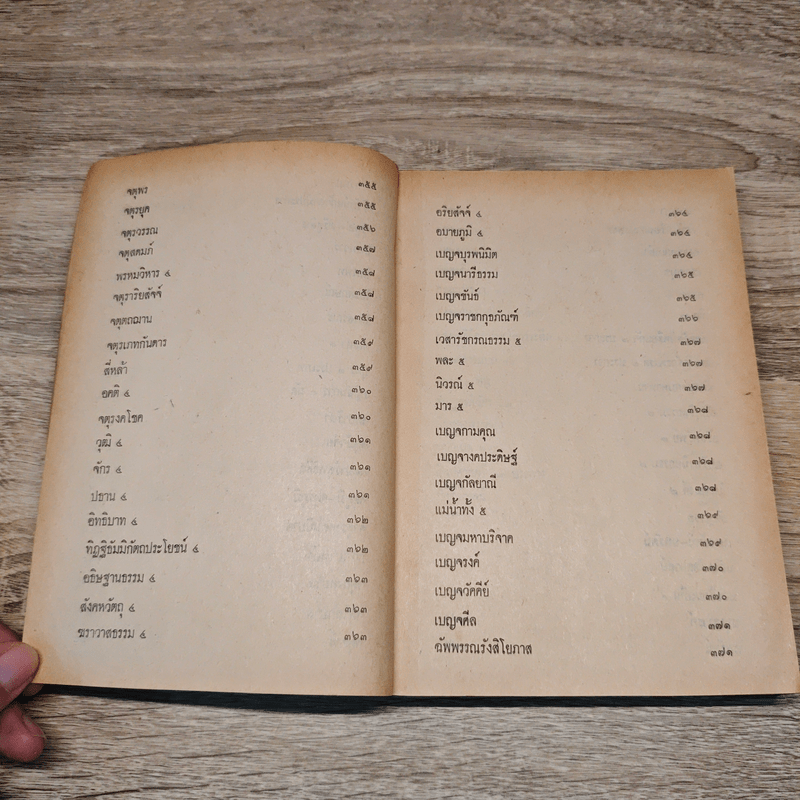 จตุพร ๓๕๕
จตุรยุค ๓๕๕
จตุรวรรณ ๓๕๖
จตุสดมภ์ ๓๕๗
พรหมวิหาร ๔ ๓๕๗
จตุราริยสัจจ์ ๓๕๘
จตุตถฌาน ๓๕๘
จตุรเภทกันดาร ๓๕๙
สี่หล้า ๓๕๙
อคติ ๔ ๓๖๐
จตุรงคโชค ๓๖๐
วุฒิ ๔ ๓๖๑
จักร ๔ ๓๖๑
ปธาน ๔ ๓๖๑
อิทธิบาท ๔ ๓๖๒
ทิฏฐิธัมมิกัตถประโยชน์ ๔ ๓๖๒
อธิษฐานธรรม ๔ ๓๖๓
สังคหวัตถุ ๔ ๓๖๓
ฆราวาสธรรม ๔ ๓๖๓
อริยสัจจ์ ๔ ๓๖๔
อบายภูมิ ๔ ๓๖๔
เบญจบุรพนิมิต ๓๖๔
เบญจนารีธรรม ๓๖๕
เบญจขันธ์ ๓๖๕
เบญจราชกกุธภัณฑ์ ๓๖๖
เวสารัชกรณธรรม ๕ ๓๖๗
พละ ๕ ๓๖๗
นิวรณ์ ๕ ๓๖๗
มาร ๕ ๓๖๘
เบญจกามคุณ ๓๖๘
เบญจางคประดิษฐ์ ๓๖๘
เบญจกัลยาณี ๓๖๘
แม่น้ำทั้ง ๕ ๓๖๙
เบญจมหาบริจาค ๓๖๙
เบญจรงค์ ๓๗๐
เบญจวัคคีย์ ๓๗๐
เบญจศีล ๓๗๑
ฉัพพรรณรังสิโยภาส ๓๗๑